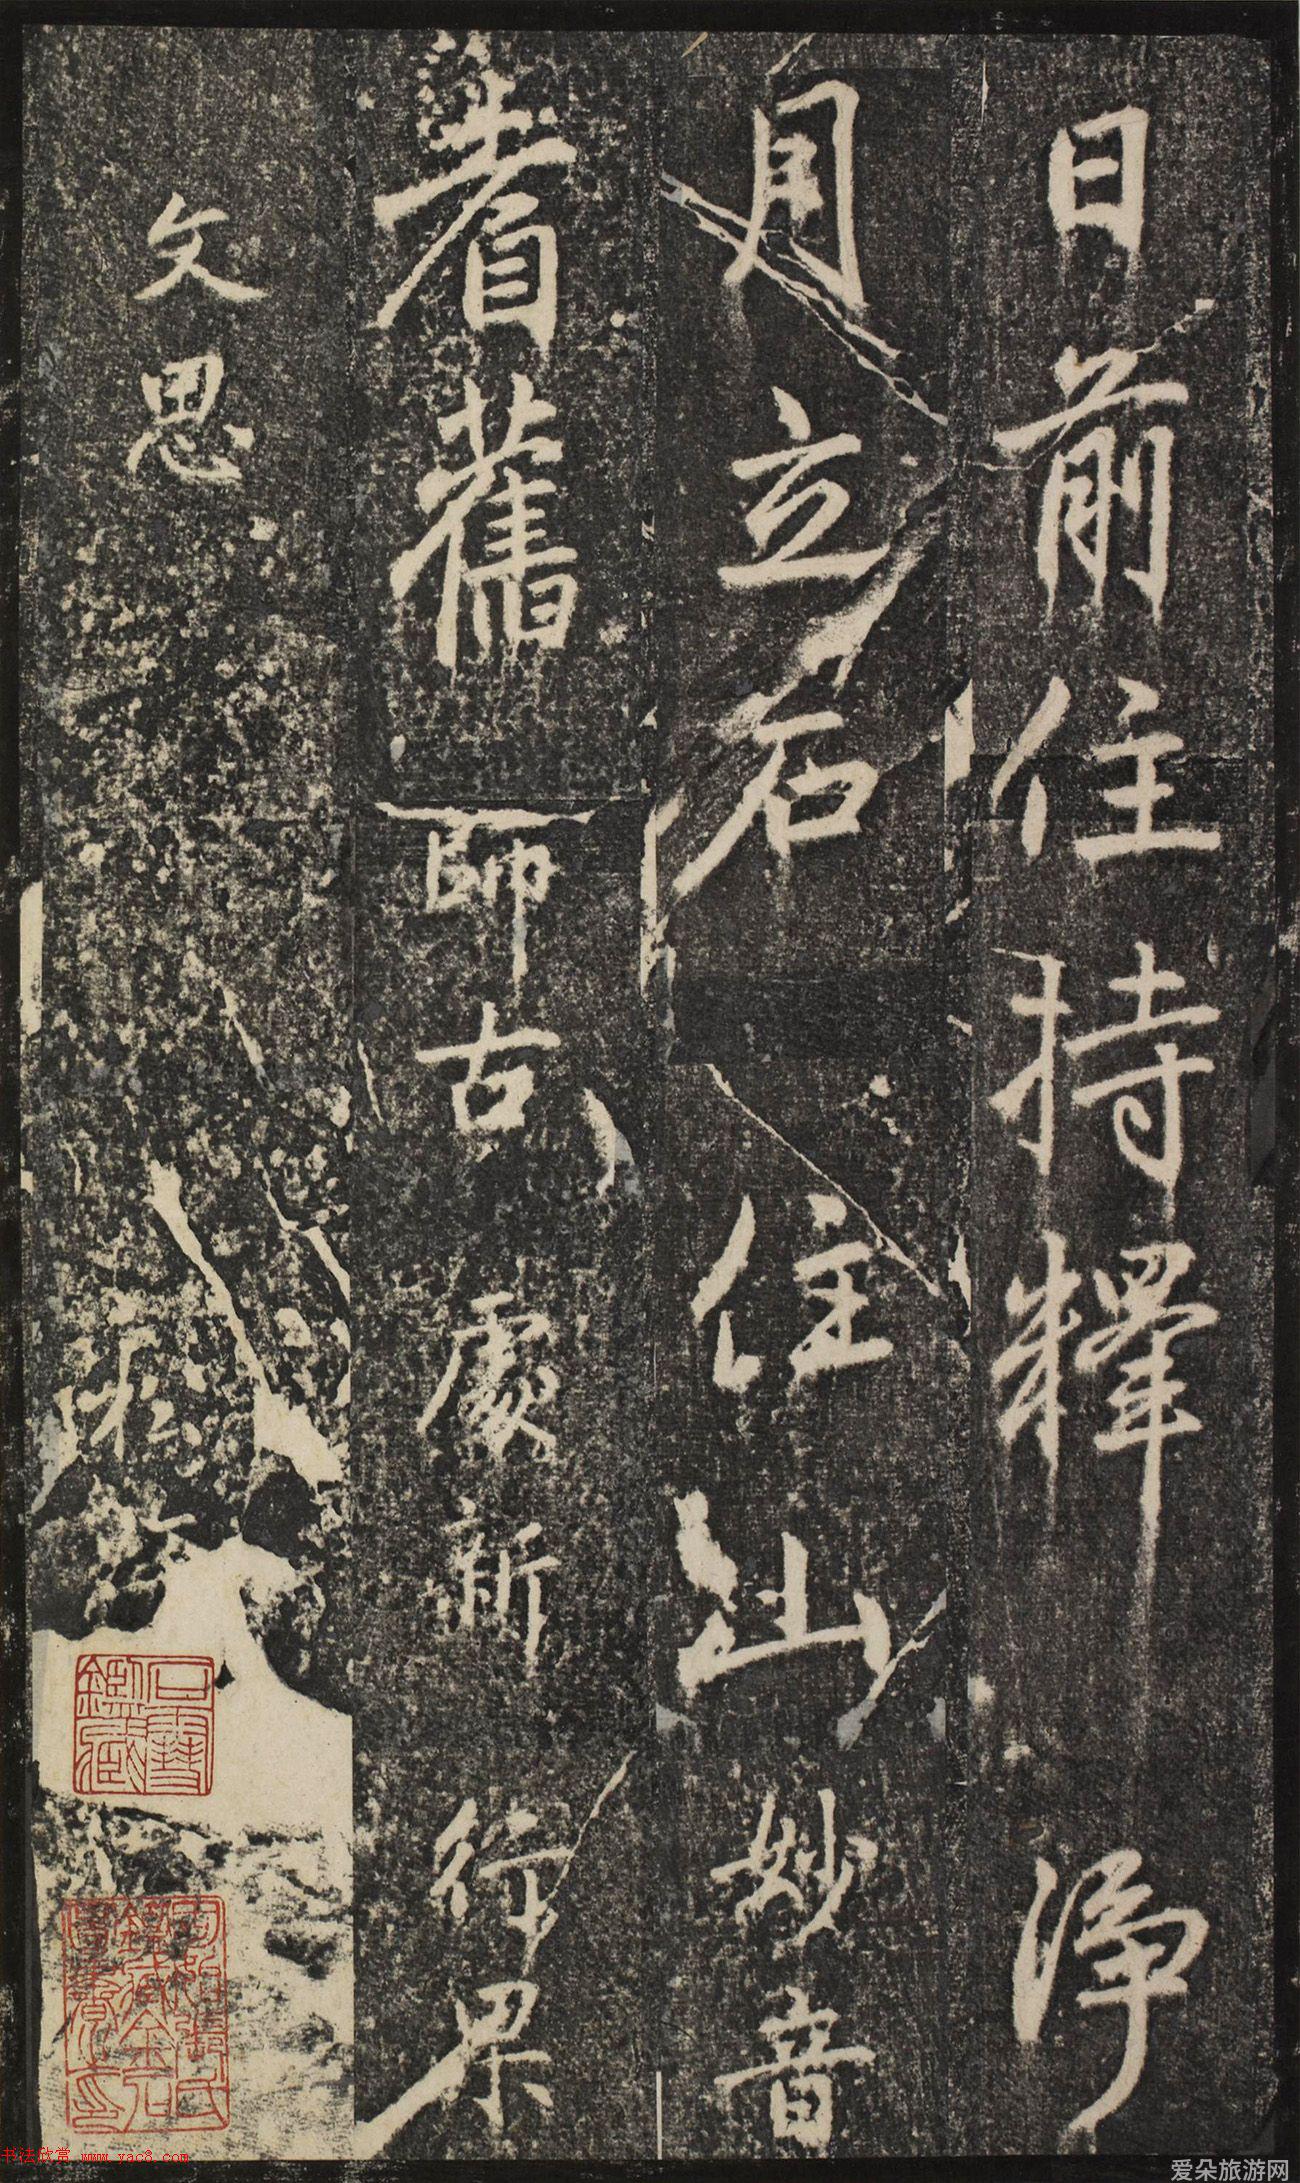 日前住持釋 淨
月立石 住山 妙音
耆舊 師古 處新 行果
文思
石雪鑑藏
書法欣賞 www.yac8.com
爱朵旅游网